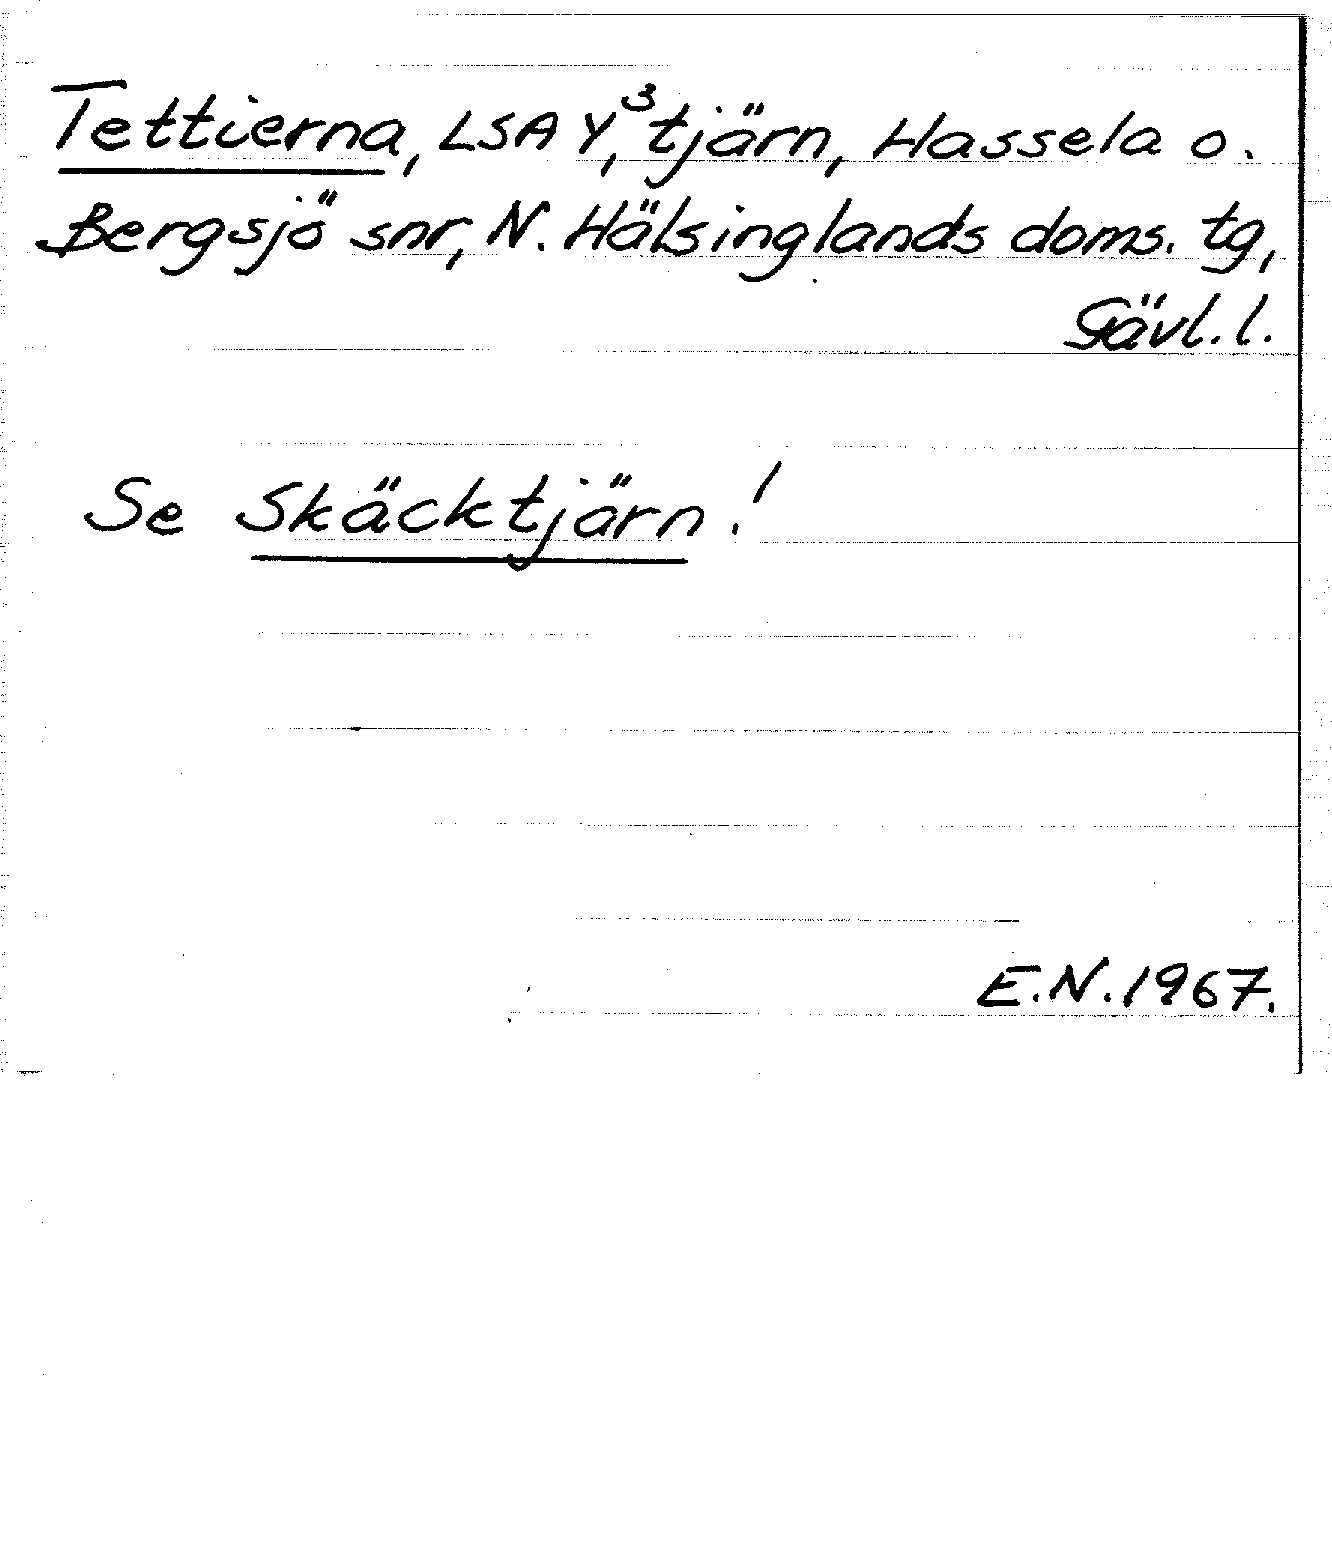 Tettierna, LSA Y³, tjärn, Hassela o.
Bergsjö snr, N. Hälsinglands doms. tg,
Gävl. l.
Se Skäcktjärn!
E.N. 1967.